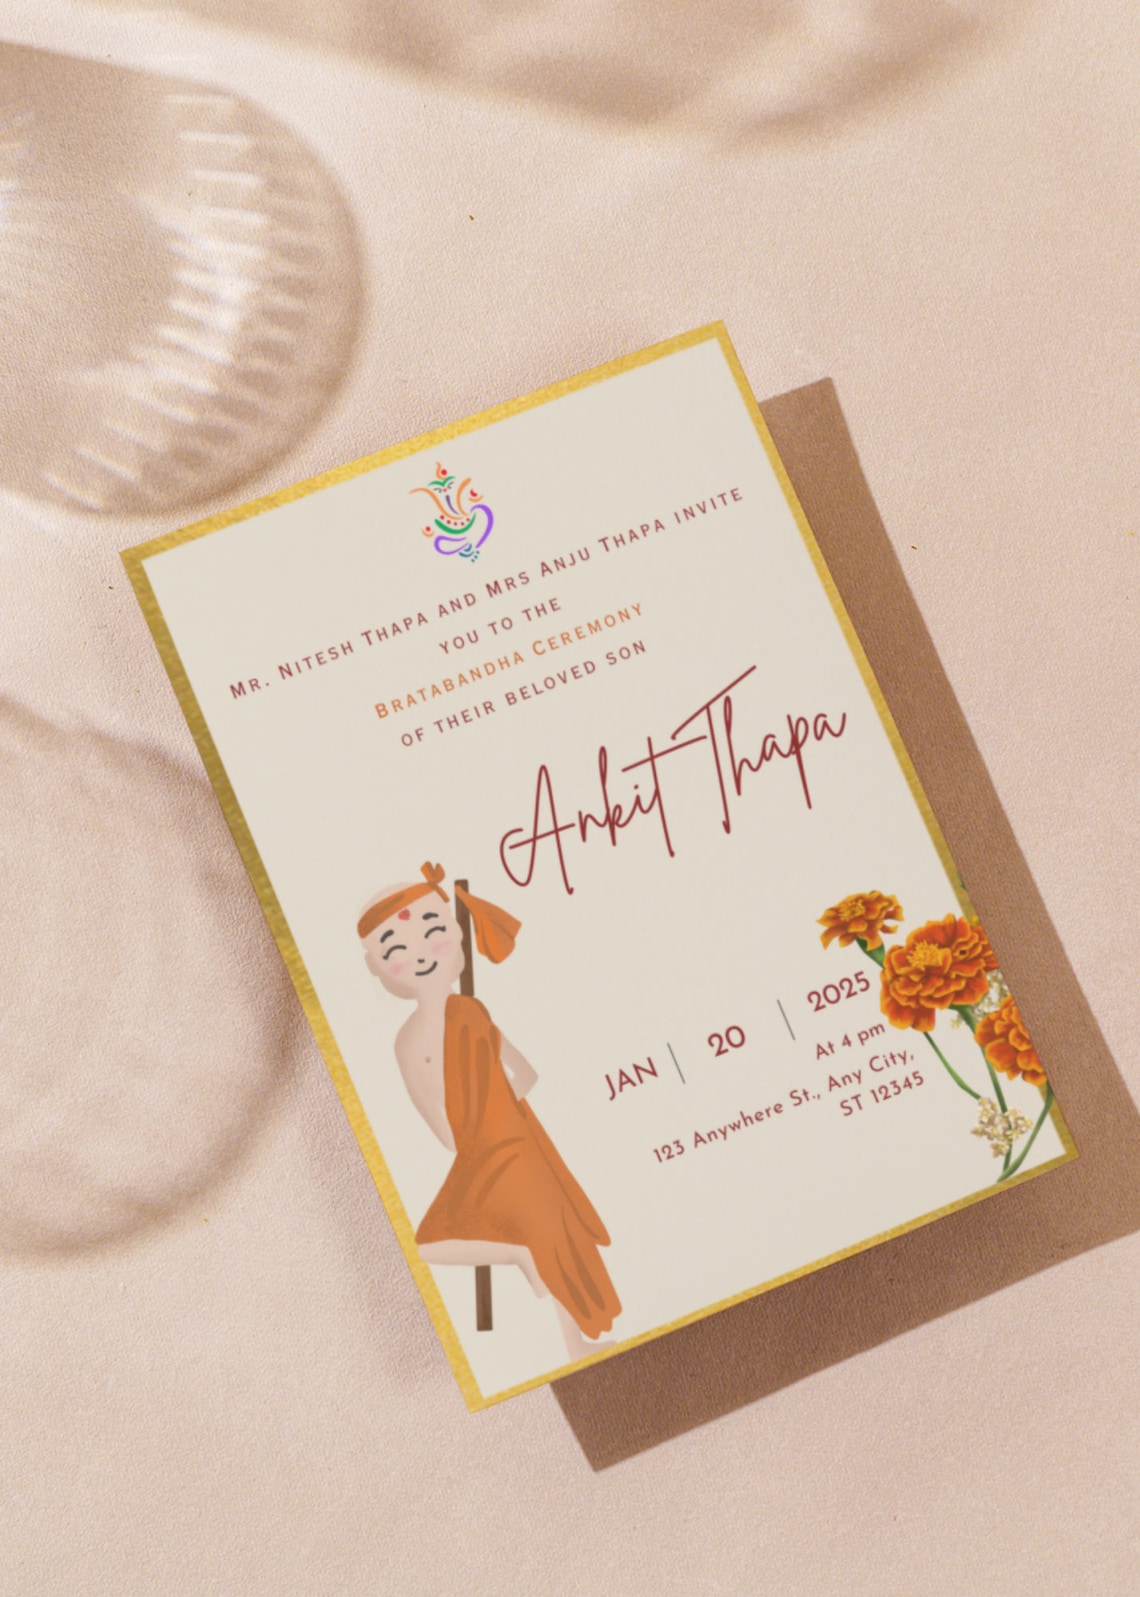 Mr. Nitesh Thapa and Mrs Anju Thapa invite
you to the
Bratabandha Ceremony
of their beloved son
Ankit Thapa
JAN | 20 | 2025
At 4 pm
123 Anywhere St., Any City,
ST 12345